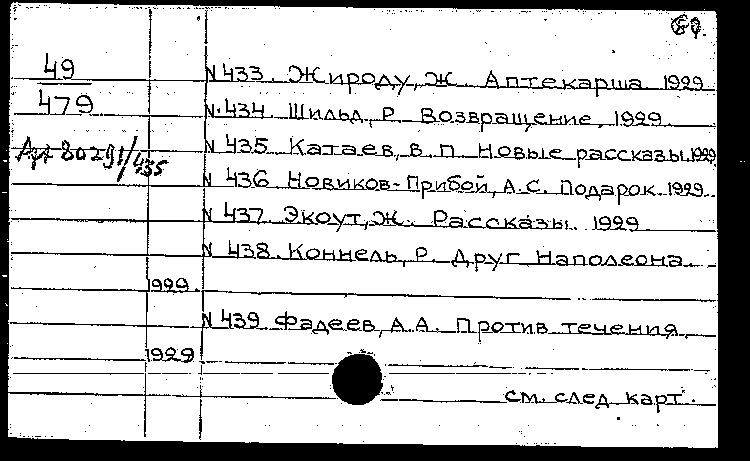 49
N 433. Жироду, Ж. Аптекарша 1929
479
N. 434. Шильд, Р. Возвращение. 1929.
80291/435
N 435 Катаев, В. П. Новые рассказы. 1929
N 436 Новиков-Прибой, А.С. Подарок. 1929.
N 437. Экоут, Ж. Рассказы. 1929
N 438. Коннель, Р. Друг Наполеона.
1929.
N 439 Фадеев, А.А. Против течения.
1929
см. след. карт.